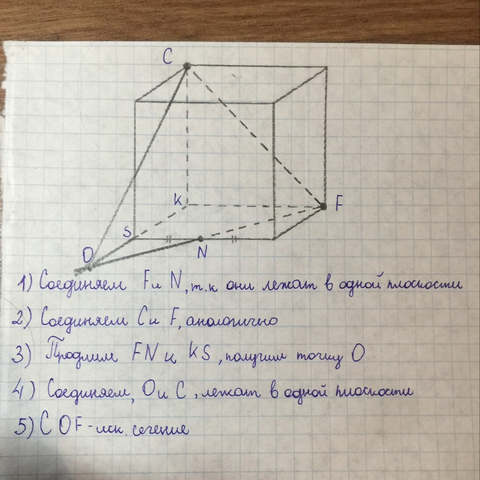 C
K
F
S
N
O
1) Соединяем F и N, т.к они лежат в одной плоскости
2) Соединяем C и F, аналогично
3) Продлим FN и KS, получим точку O
4) Соединяем, O и C, лежат в одной плоскости
5) COF - иск. сечение